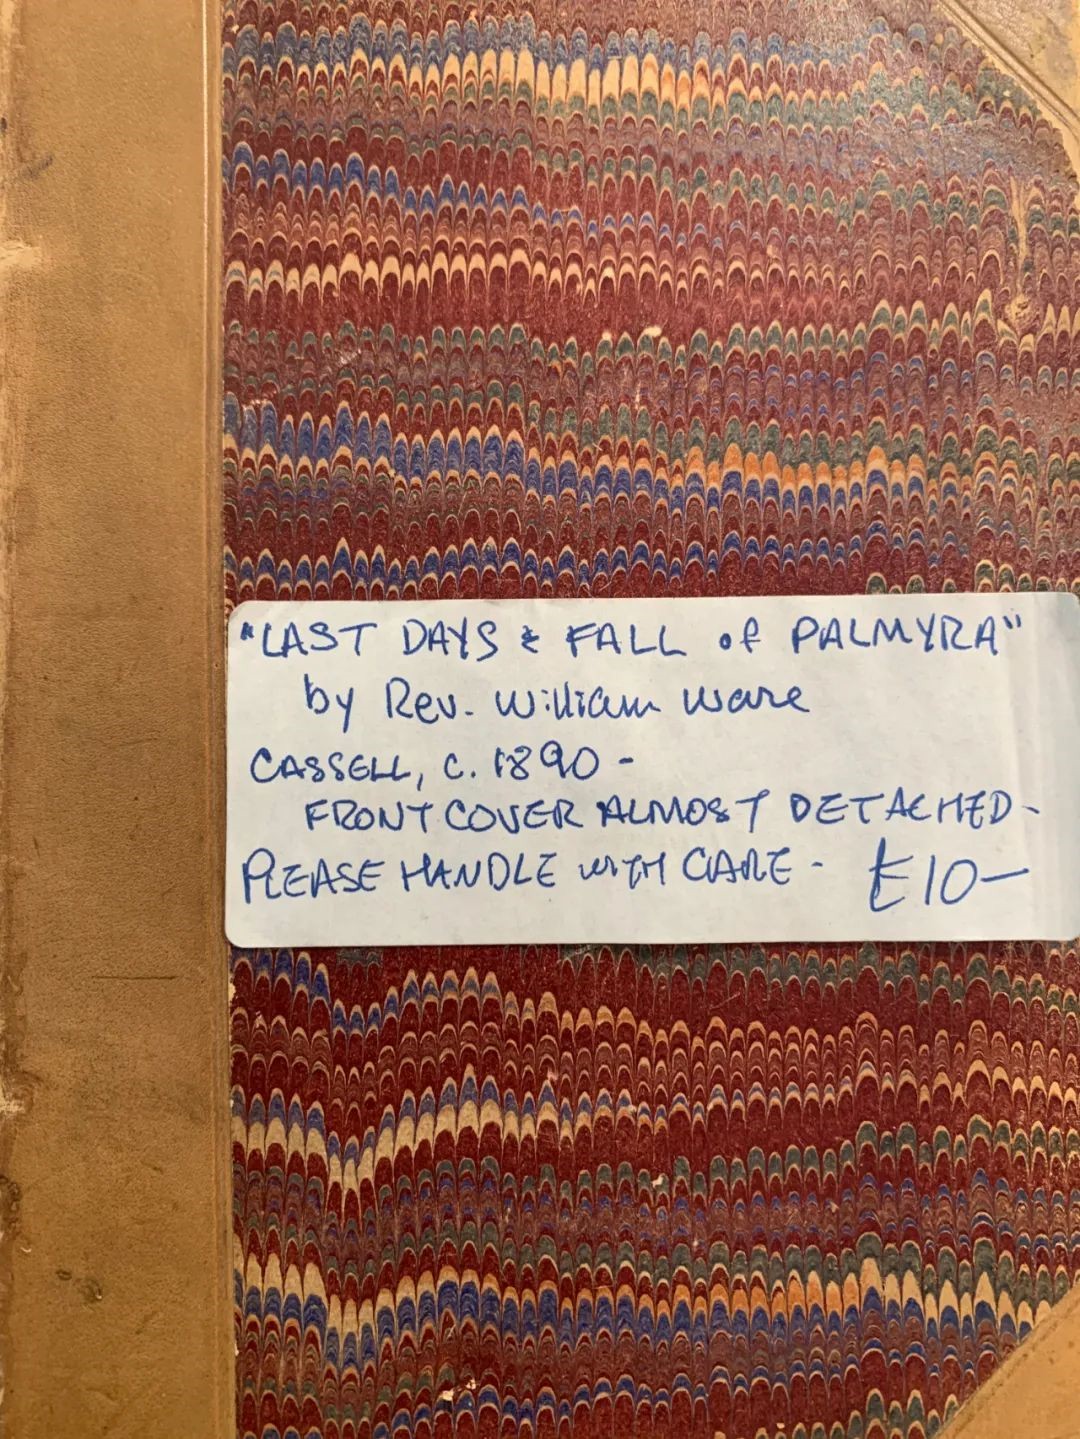 "LAST DAYS & FALL of PALMYRA"
by Rev. William Ware
CASSELL, c. 1890 -
FRONT COVER ALMOST DETACHED -
PLEASE HANDLE WITH CARE - £10-